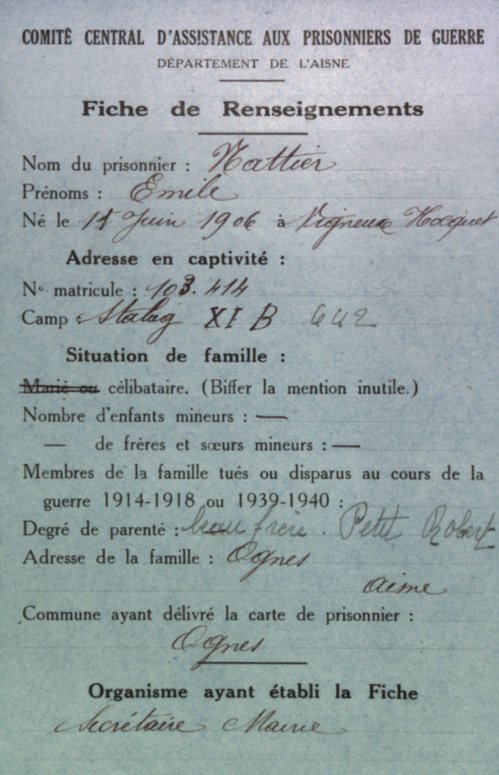 COMITÉ CENTRAL D'ASSISTANCE AUX PRISONNIERS DE GUERRE
DÉPARTEMENT DE L'AISNE
Fiche de Renseignements
Nom du prisonnier : Nattier
Prénoms : Emile
Né le 11 Juin 1906 à Vigneux Hocquet
Adresse en captivité :
No matricule : 103.414
Camp Stalag XI B 642
Situation de famille :
Marié ou célibataire. (Biffer la mention inutile.)
Nombre d'enfants mineurs : —
— de frères et sœurs mineurs : —
Membres de la famille tués ou disparus au cours de la
guerre 1914-1918 ou 1939-1940 :
Degré de parenté : beau frère. Petit Robert
Adresse de la famille : Ognes
Aisne
Commune ayant délivré la carte de prisonnier :
Ognes
Organisme ayant établi la Fiche
Secrétaire Mairie